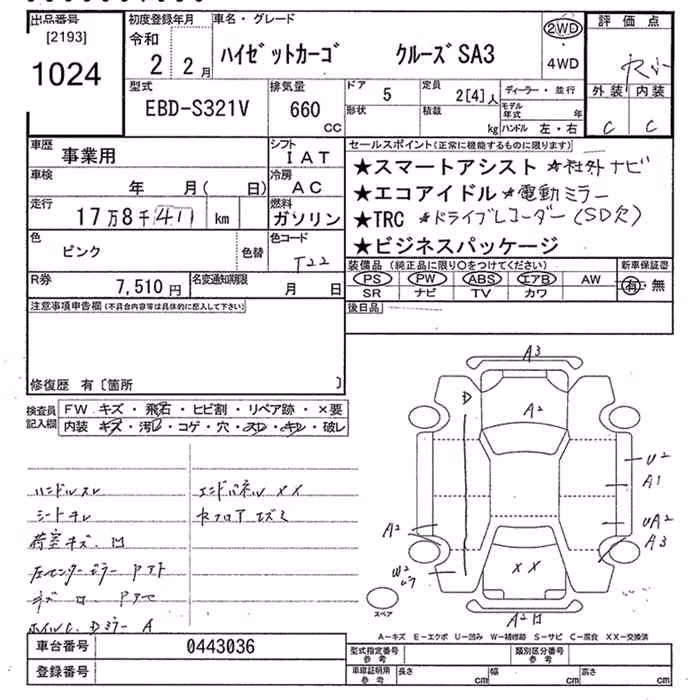 出品番号
[2193]
1024
初度登録年月
令和
2 2月
車名・グレード
ハイゼットカーゴ クルーズSA3
2WD
4WD
評価点
外装 内装
C C
型式
EBD-S321V
排気量
660
CC
ドア
5
形状
定員
2[4]人
積載
kg
ディーラー・並行
モデル年式 年
ハンドル 左・右
車歴 事業用
シフト
IAT
車検 年 月( 日)
冷房
AC
走行 17万8千411 km
燃料
ガソリン
色 ピンク 色替
色コード
T22
R券 7,510円
名変通知期限
月 日
セールスポイント(正常に機能するものに限ります)
★スマートアシスト ★社外ナビ
★エコアイドル ★電動ミラー
★TRC ★ドライブレコーダー(SD欠)
★ビジネスパッケージ
装備品(純正品に限り○をつけてください)
PS PW ABS エアB AW
SR ナビ TV カワ
新車保証書
有・無
後日品
注意事項申告欄(不具合内容等は具体的に記入して下さい)
修復歴 有〔箇所 〕
検査員記入欄
FW キズ・飛石・ヒビ割・リペア跡・×要
内装 キズ・汚レ・コゲ・穴・スレ・キレ・破レ
ハンドルスレ
エンドパネルXX
シートチレ
荷室キズ、凹
A3
D
A2
U2
A1
UA2
A3
A2
W2
XX
A2凹
スペア
A-キズ E-エクボ U-凹み W-補修跡 S-サビ C-腐食 XX-交換済
車台番号 0443036
登録番号
型式指定番号
参考
類別区分番号
参考
車庫証明用
参考
長さ cm
幅 cm
高さ cm